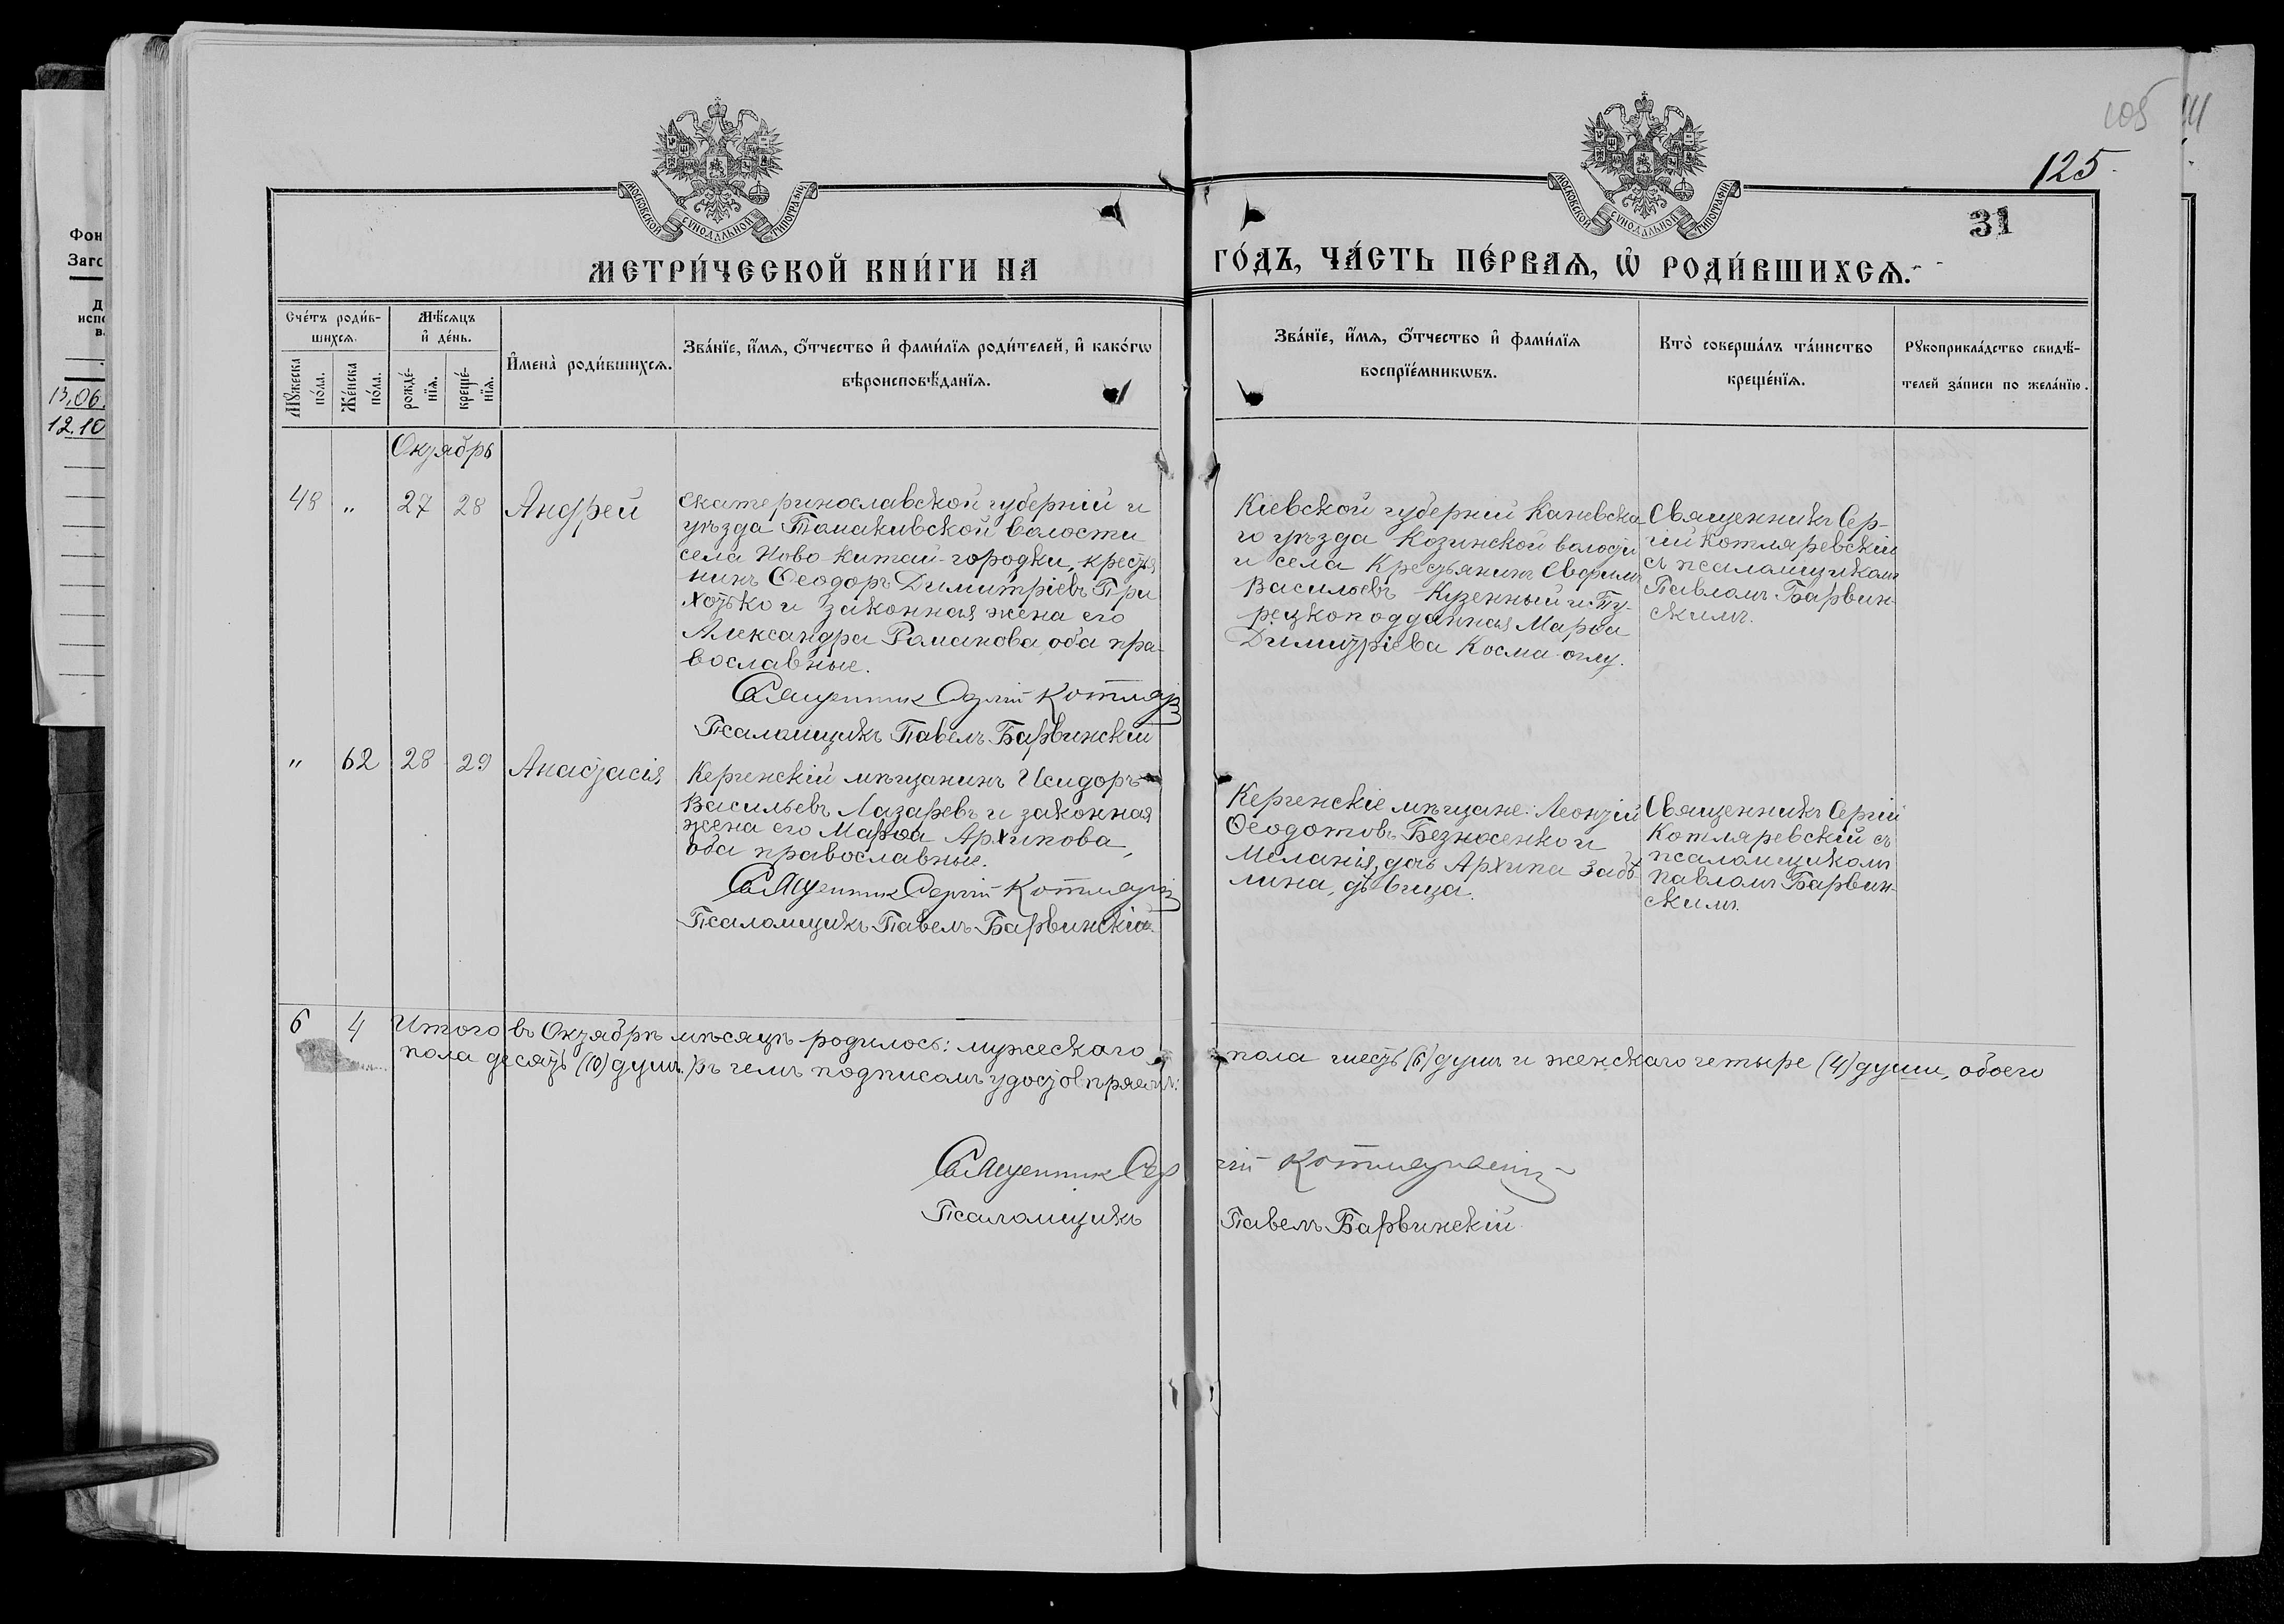 105
111
125
31
МОСКОВСКОЙ СѴНОДАЛЬНОЙ ТИПОГРАФІИ
МОСКОВСКОЙ СѴНОДАЛЬНОЙ ТИПОГРАФІИ
МЕТРИ́ЧЕСКОЙ КНИ́ГИ НА
ГО́ДЪ, ЧА́СТЬ ПЕ́РВАѦ, Ѽ РОДИ́ВШИХСѦ.
Фон
Заго
Д
испо
в
13.06.
12.10
Сче́тъ роди́в-
шихсѧ.
Мꙋ́жеска по́ла.
Же́нска по́ла.
Мѣ́сѧцъ
и҆ де́нь.
рожде́-
нїѧ.
креще́-
нїѧ.
И҆мена̀ роди́вшихсѧ.
Зва́нїе, и҆́мѧ, ѻ҆́тчество и҆ фами́лїѧ роди́телей, и҆ како́гѡ
вѣроисповѣ́данїѧ.
Зва́нїе, и҆́мѧ, ѻ҆́тчество и҆ фами́лїѧ
воспрїе́мникѡвъ.
Кто̀ соверша́лъ та́инство
креще́нїѧ.
Рꙋкоприкла́дство свидѣ́-
телей за́писи по жела́нїю.
Октябрь
48 " 27 28 Андрей
Екатеринославской губерніи и
уѣзда Томаковской волости
села Ново Китай-городки, крестья
нинъ Ѳеодоръ Димитріевъ При
хотько и законная жена его
Александра Романова, оба пра-
вославные.
Священник Сергій Котляр
Псаломщикъ Павелъ Барвинскій
Кіевской губерніи Каневска
го уѣзда Козинской волости
и села Крестьянинъ Евфимъ
Васильевъ Кузенный и Ту-
рецкоподданная Марѳа
Димитріева Косма-оглу.
Священникъ Сер-
гій Котляревскій
съ псаломщикомъ
Павломъ Барвин-
скимъ.
" 62 28 29 Анастасія
Керченскій мѣщанинъ Исидоръ
Васильевъ Лазаревъ и законная
жена его Марѳа Архипова,
оба православные.
Священник Сергій Котляр
Псаломщикъ Павелъ Барвинскій
Керченскіе мѣщане: Леонтій
Ѳеодотовъ Безносенко и
Меланія, дочь Архипа Забѣ
лина, дѣвица.
Священникъ Сергій
Котляревскій съ
псаломщикомъ
Павломъ Барвин-
скимъ.
6 4 Итого въ Октябрѣ мѣсяцѣ родилось: мужескаго пола шесть (6) душъ и женскаго четыре (4) души, обоего
пола десять (10) душъ. Въ чемъ подписомъ удостовѣряемъ:
Священник Сергій Котляревскій
Псаломщикъ Павелъ Барвинскій